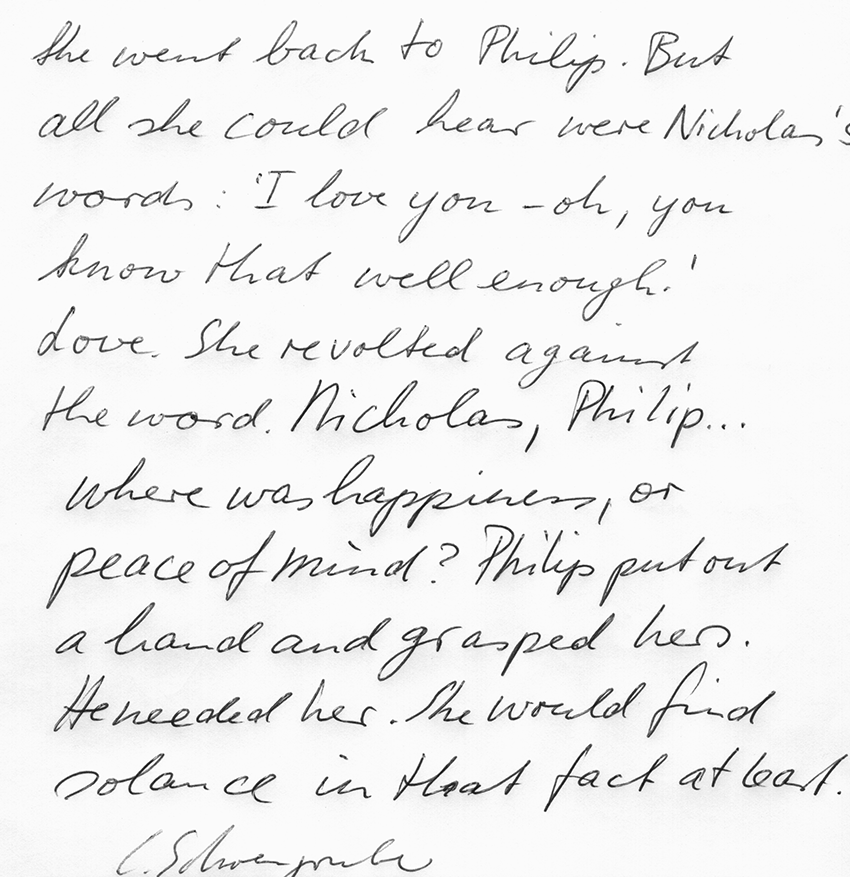 She went back to Philip. But
all she could hear were Nicholas's
words: 'I love you – oh, you
know that well enough.'
Love. She revolted against
the word. Nicholas, Philip...
where was happiness, or
peace of mind? Philip put out
a hand and grasped hers.
He needed her. She would find
solance in that fact at least.